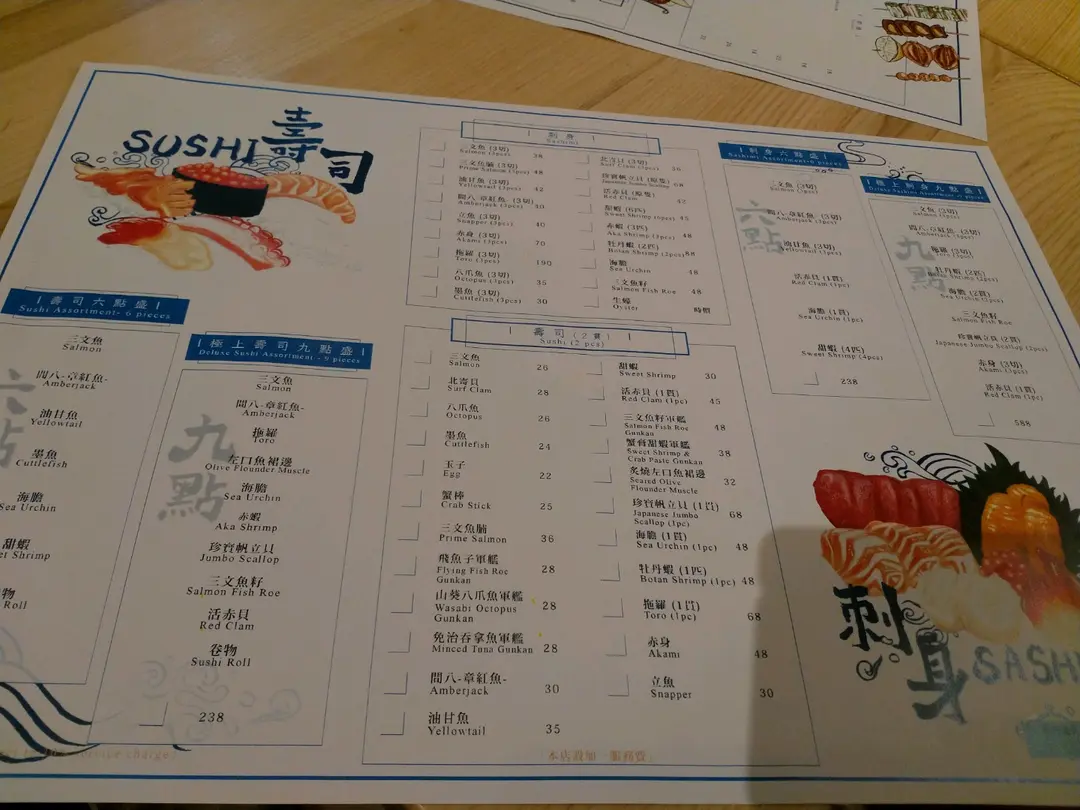 SUSHI 壽司
| 壽司六點盛 |
Sushi Assortment- 6 pieces
三文魚
Salmon
間八-章紅魚-
Amberjack
油甘魚
Yellowtail
墨魚
Cuttlefish
海膽
Sea Urchin
甜蝦
Shrimp
Roll
| 極上壽司九點盛 |
Deluxe Sushi Assortment - 9 pieces
九點
三文魚
Salmon
間八-章紅魚-
Amberjack
拖羅
Toro
左口魚裙邊
Olive Flounder Muscle
海膽
Sea Urchin
赤蝦
Aka Shrimp
珍寶帆立貝
Jumbo Scallop
三文魚籽
Salmon Fish Roe
活赤貝
Red Clam
卷物
Sushi Roll
238
| 刺身 |
Sashimi
三文魚 (3切) 38
Salmon (3pcs)
三文魚腩 (3切) 48
Prime Salmon (3pcs)
油甘魚 (3切) 42
Yellowtail (3pcs)
間八-章紅魚- (3切)
Amberjack (3pcs)
立魚 (3切) 40
Snapper (3pcs)
赤身 (3切) 70
Akami (3pcs)
拖羅 (3切) 190
Toro (3pcs)
八爪魚 (3切) 35
Octopus (3pcs)
墨魚 (3切) 30
Cuttlefish (3pcs)
北寄貝 (3切)
Surf Clam (3pcs)
珍寶帆立貝 (原隻) 68
Japanese Jumbo Scallop
活赤貝 (原隻)
Red Clam
甜蝦 45
Sweet Shrimp
赤蝦 (3匹) 48
Aka Shrimp (3pcs)
牡丹蝦 (2匹) 88
Botan Shrimp (2pcs)
海膽 48
Sea Urchin
三文魚籽 48
Salmon Fish Roe
生蠔 時價
Oyster
| 壽司 (2貫) |
Sushi (2 pcs)
三文魚 26
Salmon
北寄貝 28
Surf Clam
八爪魚 26
Octopus
墨魚 24
Cuttlefish
玉子 22
Egg
蟹棒 25
Crab Stick
三文魚腩 36
Prime Salmon
飛魚子軍艦 28
Flying Fish Roe
Gunkan
山葵八爪魚軍艦 28
Wasabi Octopus
Gunkan
免治吞拿魚軍艦
Minced Tuna Gunkan 28
間八-章紅魚- 30
Amberjack
油甘魚 35
Yellowtail
甜蝦 30
Sweet Shrimp
活赤貝 (1貫) 45
Red Clam (1pc)
三文魚籽軍艦 48
Salmon Fish Roe
Gunkan
蟹膏甜蝦軍艦 38
Sweet Shrimp &
Crab Paste Gunkan
炙燒左口魚裙邊 32
Seared Olive
Flounder Muscle
珍寶帆立貝 (1貫) 68
Japanese Jumbo
Scallop (1pc)
海膽 (1貫)
Sea Urchin (1pc) 48
牡丹蝦 (1匹)
Botan Shrimp (1pc) 48
拖羅 (1貫) 68
Toro (1pc)
赤身 48
Akami
立魚 30
Snapper
| 刺身六點盛 |
Sashimi Assortment- 6 pieces
六點
三文魚 (3切)
Salmon (3pcs)
間八-章紅魚- (3切)
Amberjack (3pcs)
油甘魚 (3切)
Yellowtail (3pcs)
活赤貝 (1貫)
Red Clam (1pc)
海膽 (1貫)
Sea Urchin (1pc)
甜蝦 (4匹)
Sweet Shrimp (4pcs)
238
| 極上刺身九點盛 |
Deluxe Sashimi Assortment - 9 pieces
九點
三文魚 (3切)
Salmon (3pcs)
間八-章紅魚- (3切)
Amberjack (3pcs)
拖羅
Toro
牡丹蝦 (2匹)
Botan Shrimp (2pcs)
海膽 (2貫)
Sea Urchin (2pcs)
三文魚籽
Salmon Fish Roe
珍寶帆立貝 (2貫)
Japanese Jumbo Scallop (2pcs)
赤身 (3切)
Akami (3pcs)
活赤貝 (1貫)
Red Clam (1pc)
588
刺身 SASHI